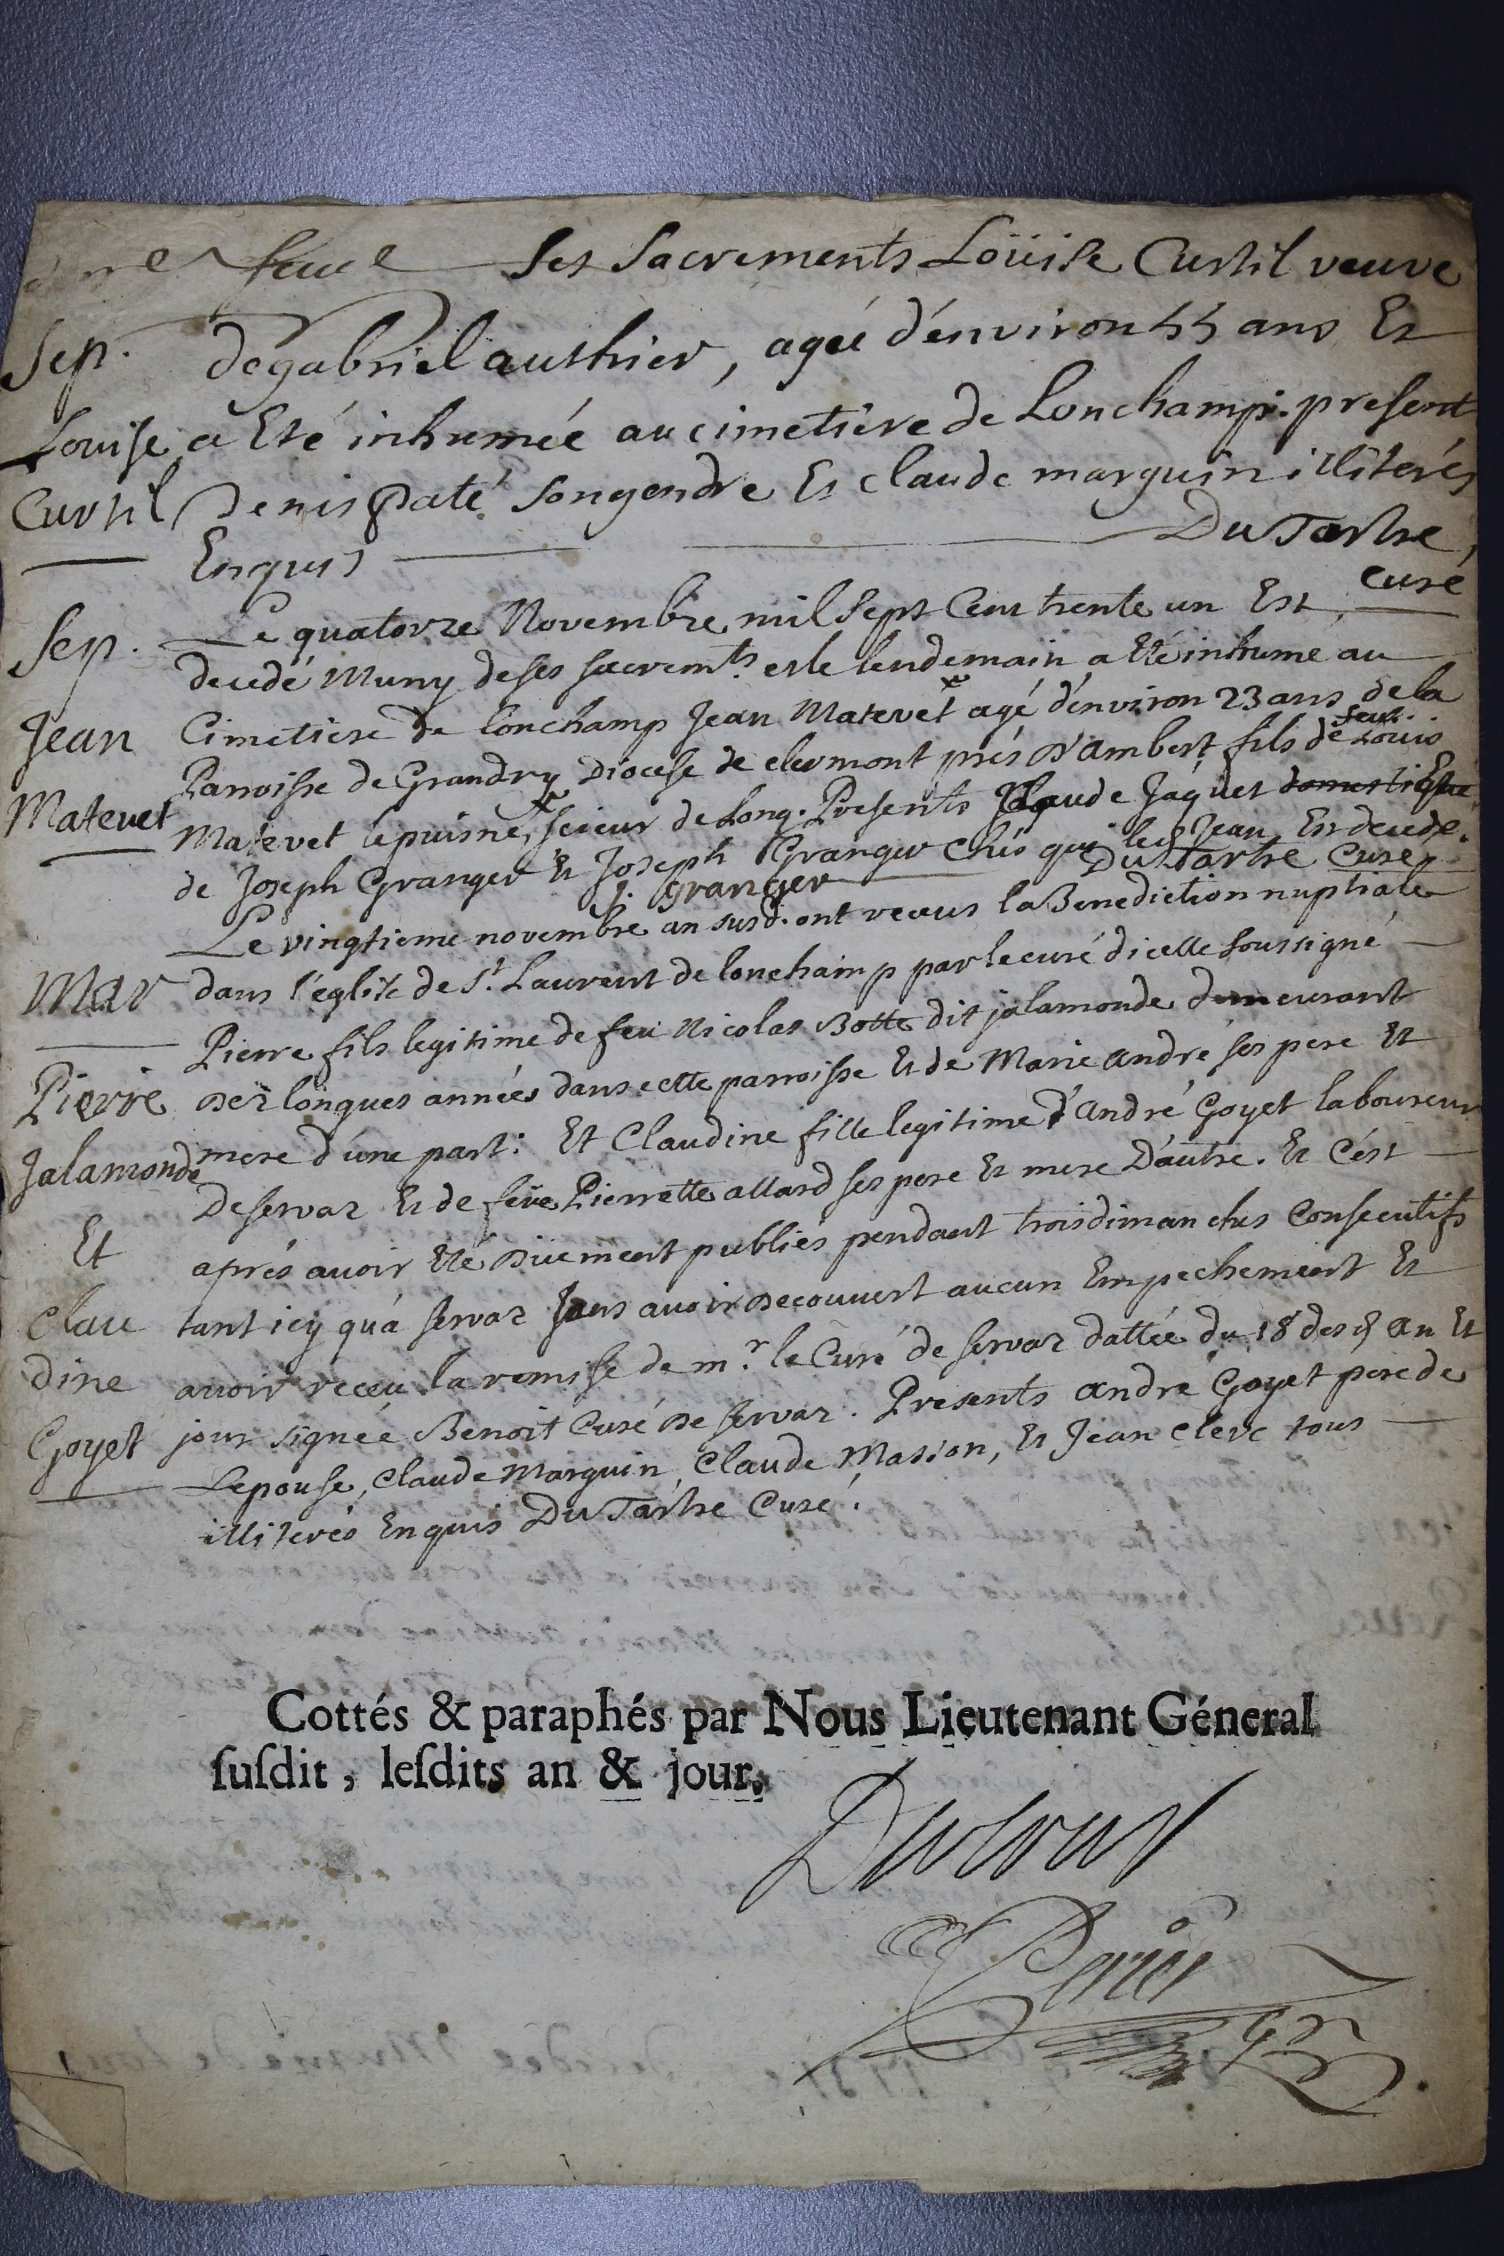 ses sacrements Loüise Curtil veuve
Sep. de gabriel authier, ageé d'énviron 55 ans Et
Louise a Eté inhumée au cimetiere de Lonchamp. present
Curtil Denis Paté son gendre Et claude marguin illiterés
Enquis Du Tartre,
curé
Sep. Le quatorze Novembre mil sept Cent trente un Est
decedé Muny de ses sacremts. et le lendemain a Eté inhumé au
Jean Cimetiere de lonchamp Jean Matevet agé d'énviron 23 ans de la
feu
Paroisse de Grandry Diocese de clermont prés D'Ambert fils de Louis
Matevet Matevet le puisne, scieur de Long. Presents Claude Jaquet domestique
de Joseph Granger Et Joseph Granger chés qui led Jean Est decedé.
J. granger Du Tartre Curé
Le vingtieme novembre an susd. ont receus la Benediction nuptiale
Mar dans l'église de St. Laurent de lonchamp par le curé d'icelle soussigné
Pierre fils legitime de feu Nicolas Botte dit jalamonde demeurant
Pierre dez longues années dans cette paroisse Et de Marie andré ses pere Et
Jalamonde mere d'une part: Et Claudine fille legitime d'André Goyet laboureur
De servaz Et de feüe Pierrette allard ses pere Et mere D'autre. Et C'ést
Et aprés avoir Eté Düement publiés pendant trois dimanches Consecutifs
Clau tant icy qu'a servaz sans avoir decouvert aucun Empechement Et
dine avoir receu la remise de mr. le Curé de servaz dattée du 18 desd an Et
Goyet jour signée Benoit Curé de servaz. Presents andré Goyet pere de
Lepouse, Claude Marguin, Claude Masson, Et Jean Clerc tous
illiterés Enquis Du Tartre Curé.
Cottés & paraphés par Nous Lieutenant Géneral
susdit, lesdits an & jour.